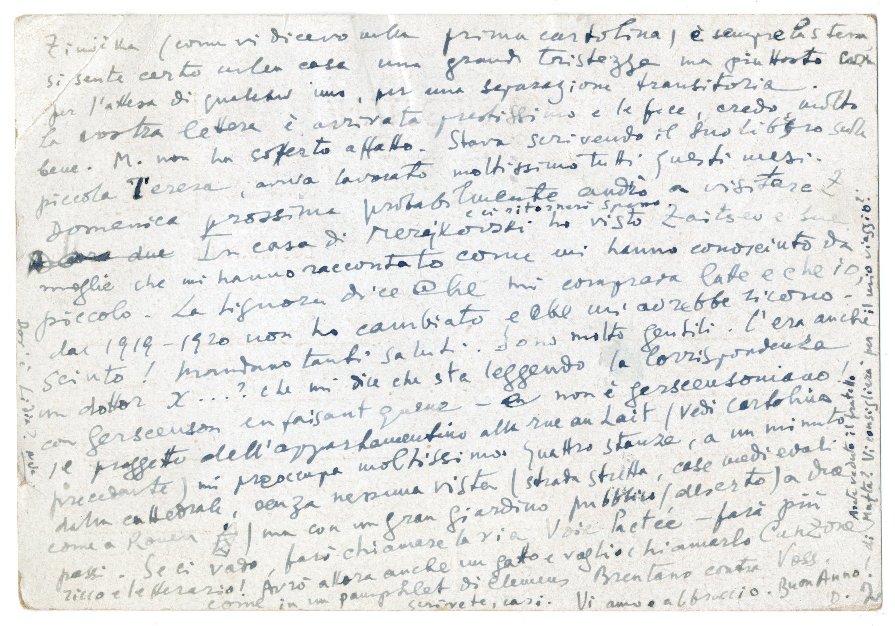 Zinička (come vi dicevo nella prima cartolina) è sempre la stessa
si sente certo nella casa una grande tristezza ma piuttosto come
per l'attesa di qualche , per una separazione transitoria.
La vostra lettera è arrivata prestissimo e le fece, credo, molto
bene. M. non ha sofferto affatto. Stava scrivendo il suo libro sulla
piccola Teresa, aveva lavorato moltissimo tutti questi mesi.
Domenica prossima probabilmente andrò a visitare Z
e ci ritornerò spesso.
due In casa di Merejkovski ho visto Zaitsev e sua
moglie che mi hanno raccontato come mi hanno conosciuto da
piccolo. La signora dice che mi comprava latte e che io
dal 1919-1920 non ho cambiato e che mi avrebbe ricono-
sciuto! Mandano tanti saluti. Sono molto gentili. C'era anche
un dottor X...? che mi dice che sta leggendo la Corrispondenza
con Gerscenson en faisant – non è gerscensoniano!
Il progetto dell'appartamentino alla rue au Lait (vedi cartolina
precedente) mi preoccupa moltissimo. Quattro stanze, a un minuto
dalla cattedrale, senza nessuna vista (strada stretta, case medievali
come a Rouen) ma con un gran giardino pubblico (deserto) a due
passi. Se ci vado, farò chiamare la via Voie Lactée – farà più
ricco e letterario! Avrò allora anche un gatto e voglio chiamarlo Canzone
come in un pamphlet di Clemens Brentano contro Voss.
scrivete, cari. Vi amo e abbraccio. Buon Anno
D.
Dov'è Lidia?
Avete veduto il prefetto
di Malta? Vi consiglierei per il mio viaggio?